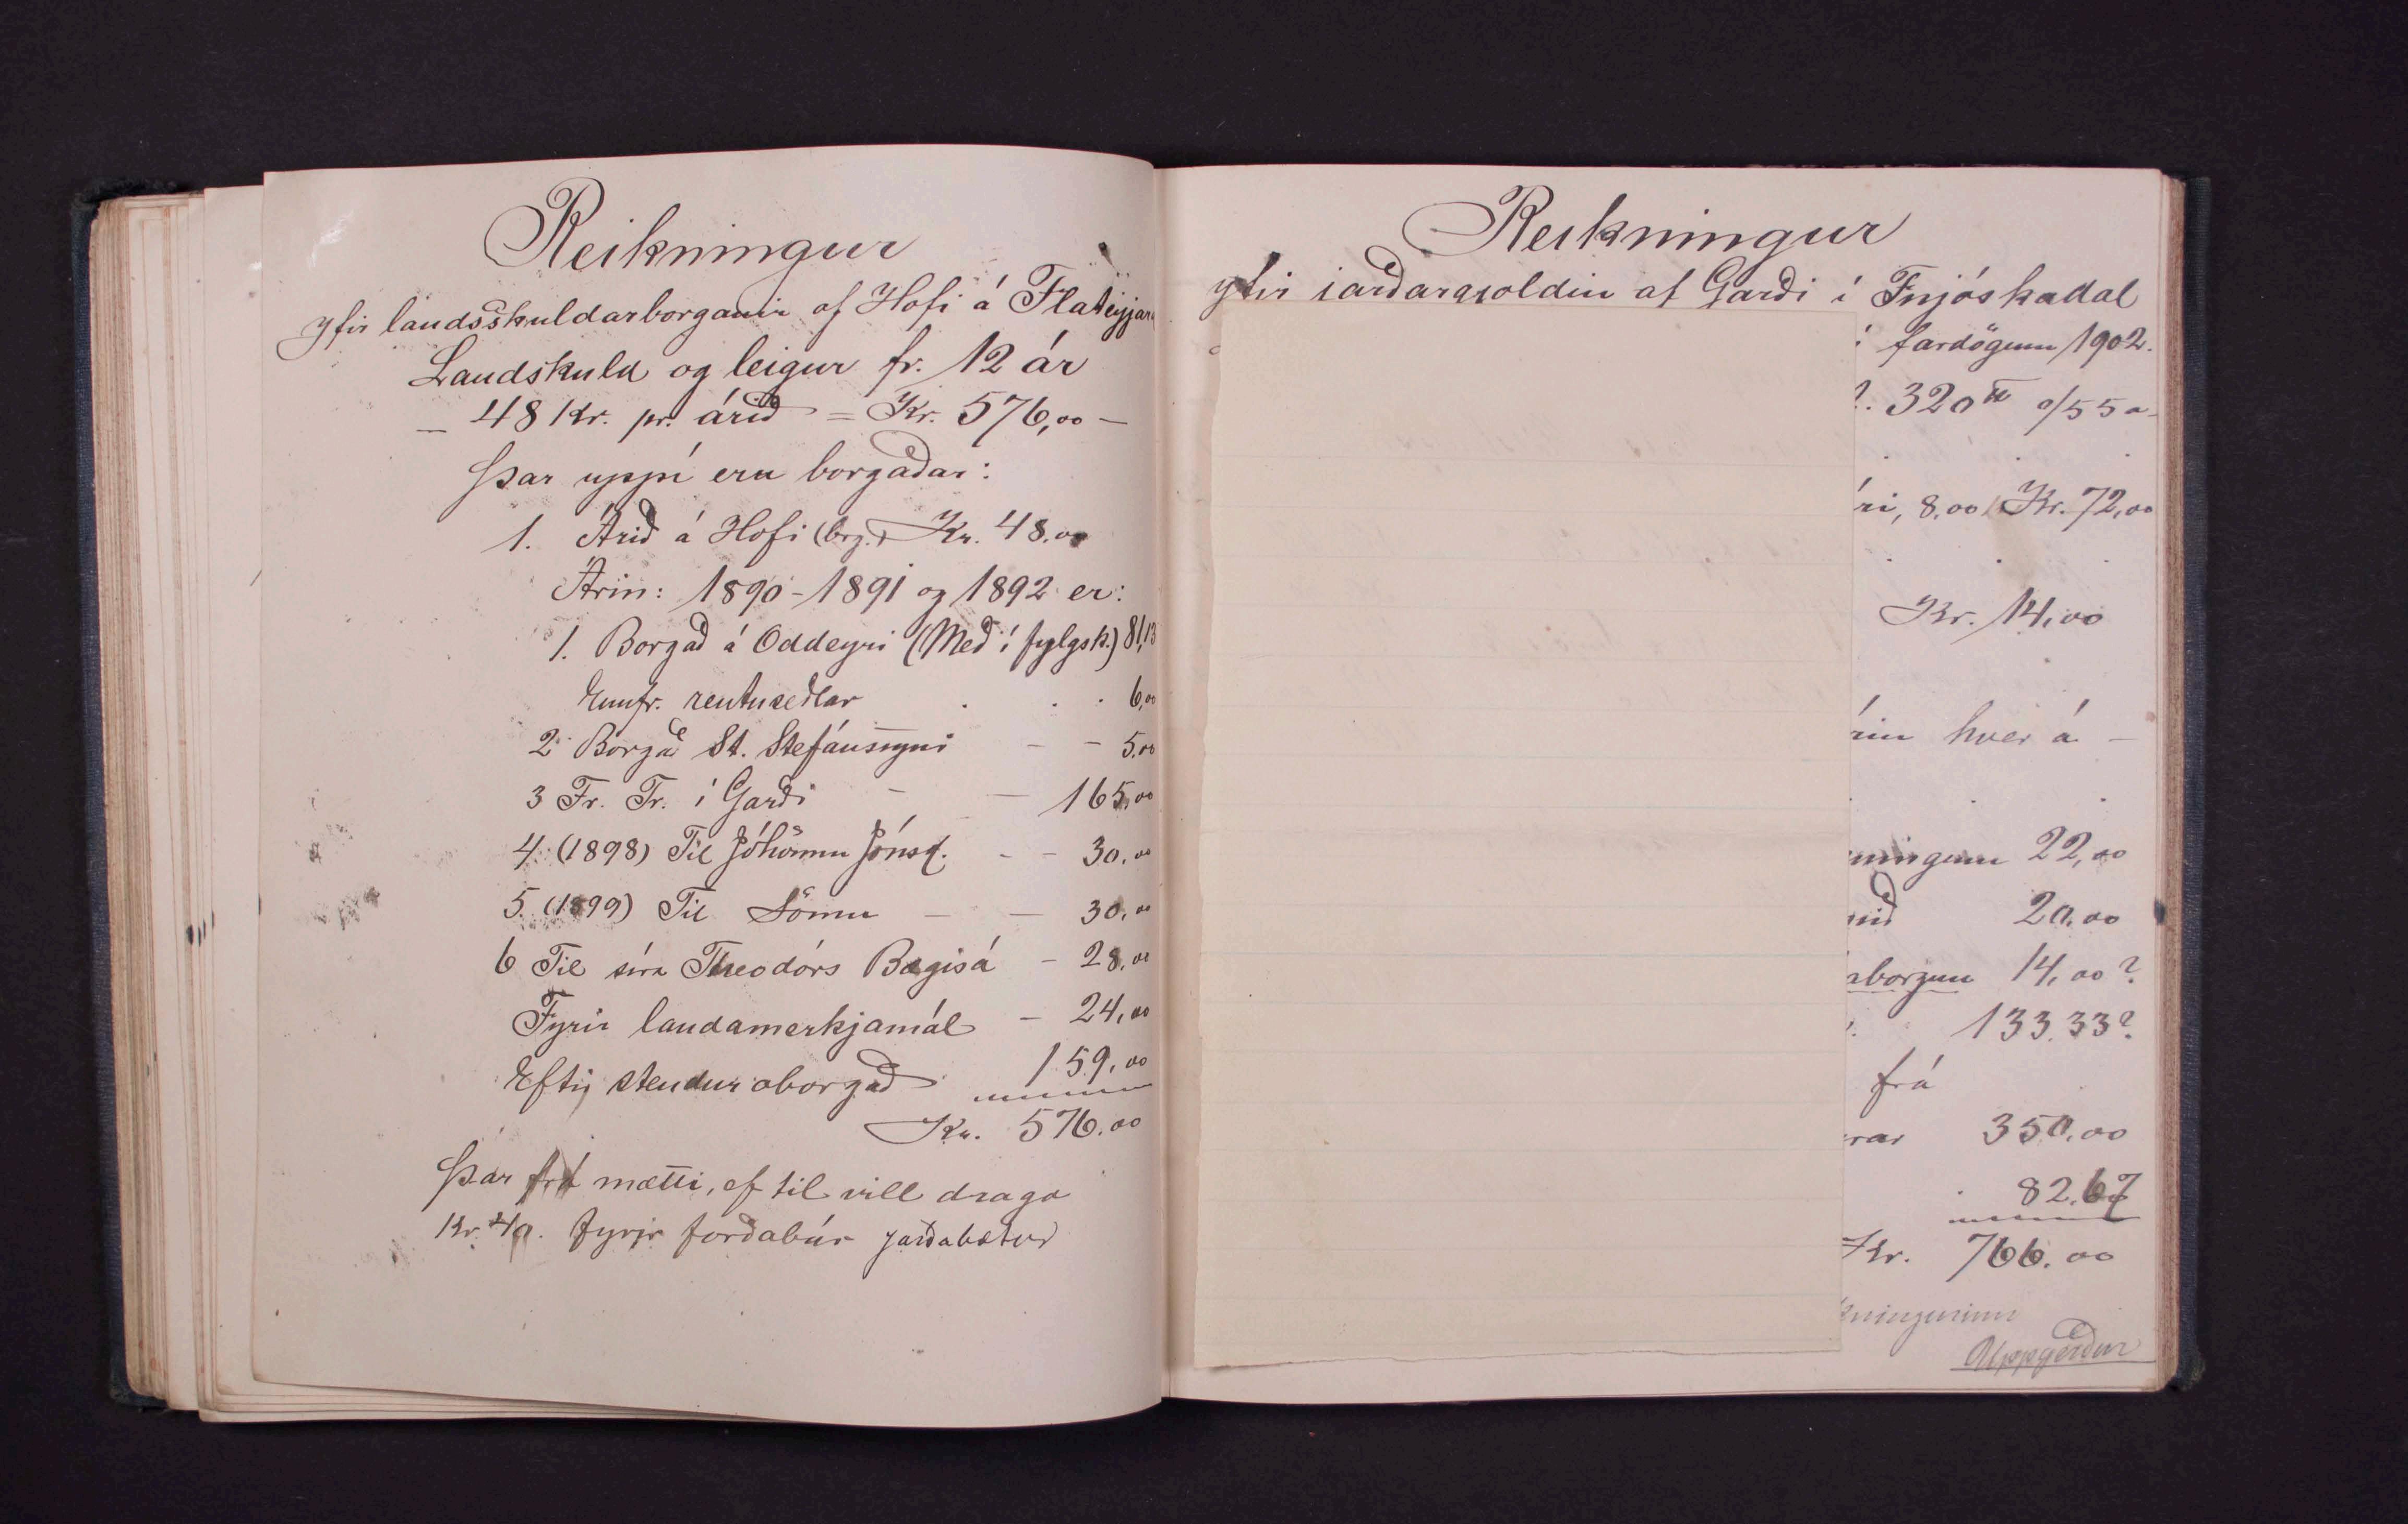 Reikningur
yfir landsskuldarborganir af Hofi á Flateyjar
Landskuld og leigur fr. 12 ár
– 48 Kr. pr. árið = Kr. 576,00 –
Þar uppí eru borgaðar:
1. Árið á Hofi (brg.) Kr. 48.00
Árin: 1890 – 1891 og 1892 er:
1. Borgað á Oddeyri (Með í fylgsk.) 81,13
Ennfr. rentuseðlar . . . 6,00
2 Borgað St. Stefánssyni – – 5.00
3 Fr. Tr. í Garði – – 165,00
4. (1898) Til Jóhönnu Jónsd. – – 30,00
5. (1899) Til Sömu – – 30,00
6 Til síra Theodórs Bægisá – 28,00
Fyrir landamerkjamál – 24,00
Eftir stendur oborgað 159,00
Kr. 576.00
Þar frá mætti, ef til vill draga
Kr. 40. fyrir forðabúr jarðabætur
Reikningur
yfir jarðargjöldin af Garði í Fnjóskadal
í fardögum 1902.
?. 320 ℔ a/55 a
ri, 8.00 Kr. 72,00
Kr. 14,00
rin hver á –
ningum 22,00
nið 20.00
borgun 14,00?
133.33?
frá
rar 350,00
82.67
Kr. 766.00
kningurinn
Uppgerður